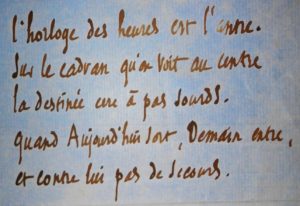 L'horloge des heures est l'antre.
Sur le cadran qu'on voit au centre
la destinée erre à pas sourds.
quand Aujourd'hui sort, Demain entre,
et contre lui pas de secours.